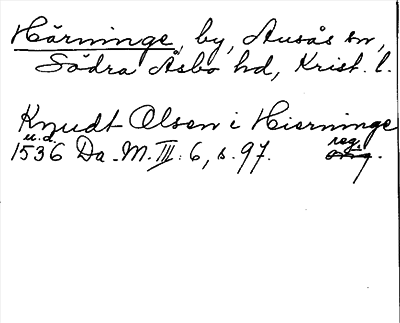 Härninge, by, Ausås sn,
Södra Åsbo hd, Krist. l.
Knudt Olsen i Hierninge
u.d.
1536 Da. M. III. 6, s. 97. reg.
orig.